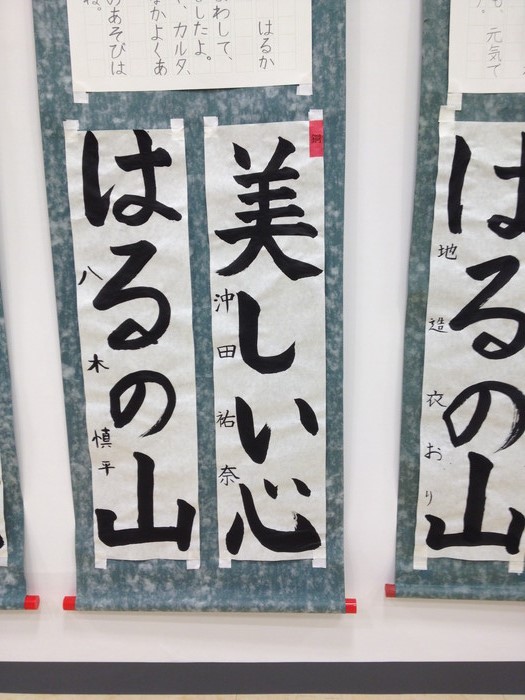 元気で
地造衣おり
はるの山
はるか
わして、
したよ。
、カルタ、
なかよくあ
のあそびは
ね。
銅
美しい心
沖田祐奈
はるの山
八木慎平